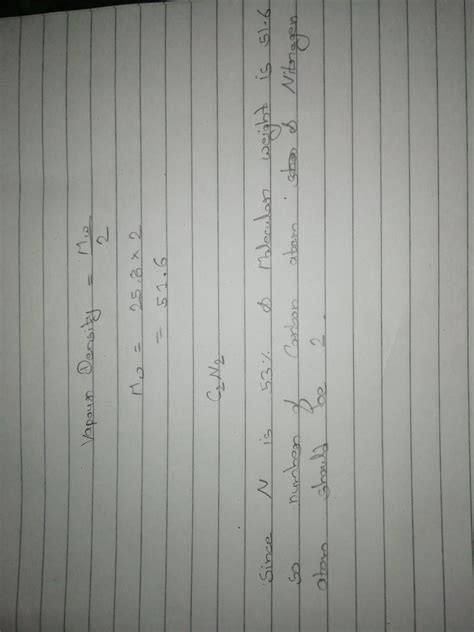 Vapour Density = Mw
2
Mw = 25.8 × 2
= 51.6
C2N2
Since N is 53% & Molecular weight is 51.6
so number of Carbon atom & Nitrogen
atom should be 2.